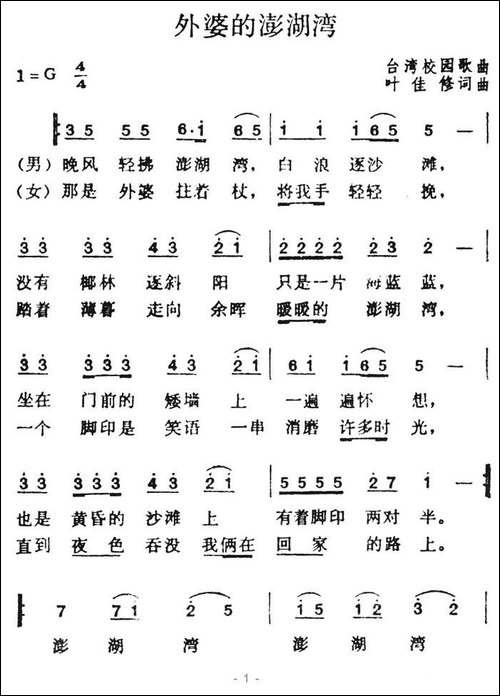 外婆的澎湖湾
1=G 4/4
台湾校园歌曲
叶佳修词曲
3 5 5 5 6·1 6 5 | 1 1 1 6 5 5 —
(男)晚风 轻拂 澎湖 湾, 白 浪 逐沙 滩,
(女)那是 外婆 拄着 杖, 将我手 轻轻 挽,
3 3 3 3 4 3 2 1 | 2 2 2 2 2 3 2 —
没有 椰林 逐斜 阳 只是一片 海蓝 蓝,
踏着 薄暮 走向 余晖 暖暖的 澎湖 湾,
3 3 3 3 3 4 3 2 | 6 1 1 6 5 5 —
坐在 门前的 矮墙 上 一遍 遍怀 想,
一个 脚印是 笑语 一串 消磨 许多时 光,
3 3 3 3 3 4 3 2 1 | 5 5 5 5 2 7 1 —
也是 黄昏的 沙滩 上 有着脚印 两对 半。
直到 夜色 吞没 我俩在 回家 的路 上。
7 7 1 2 5 | 1 5 1 2 3 2
澎 湖 湾 澎 湖 湾
- 1 -